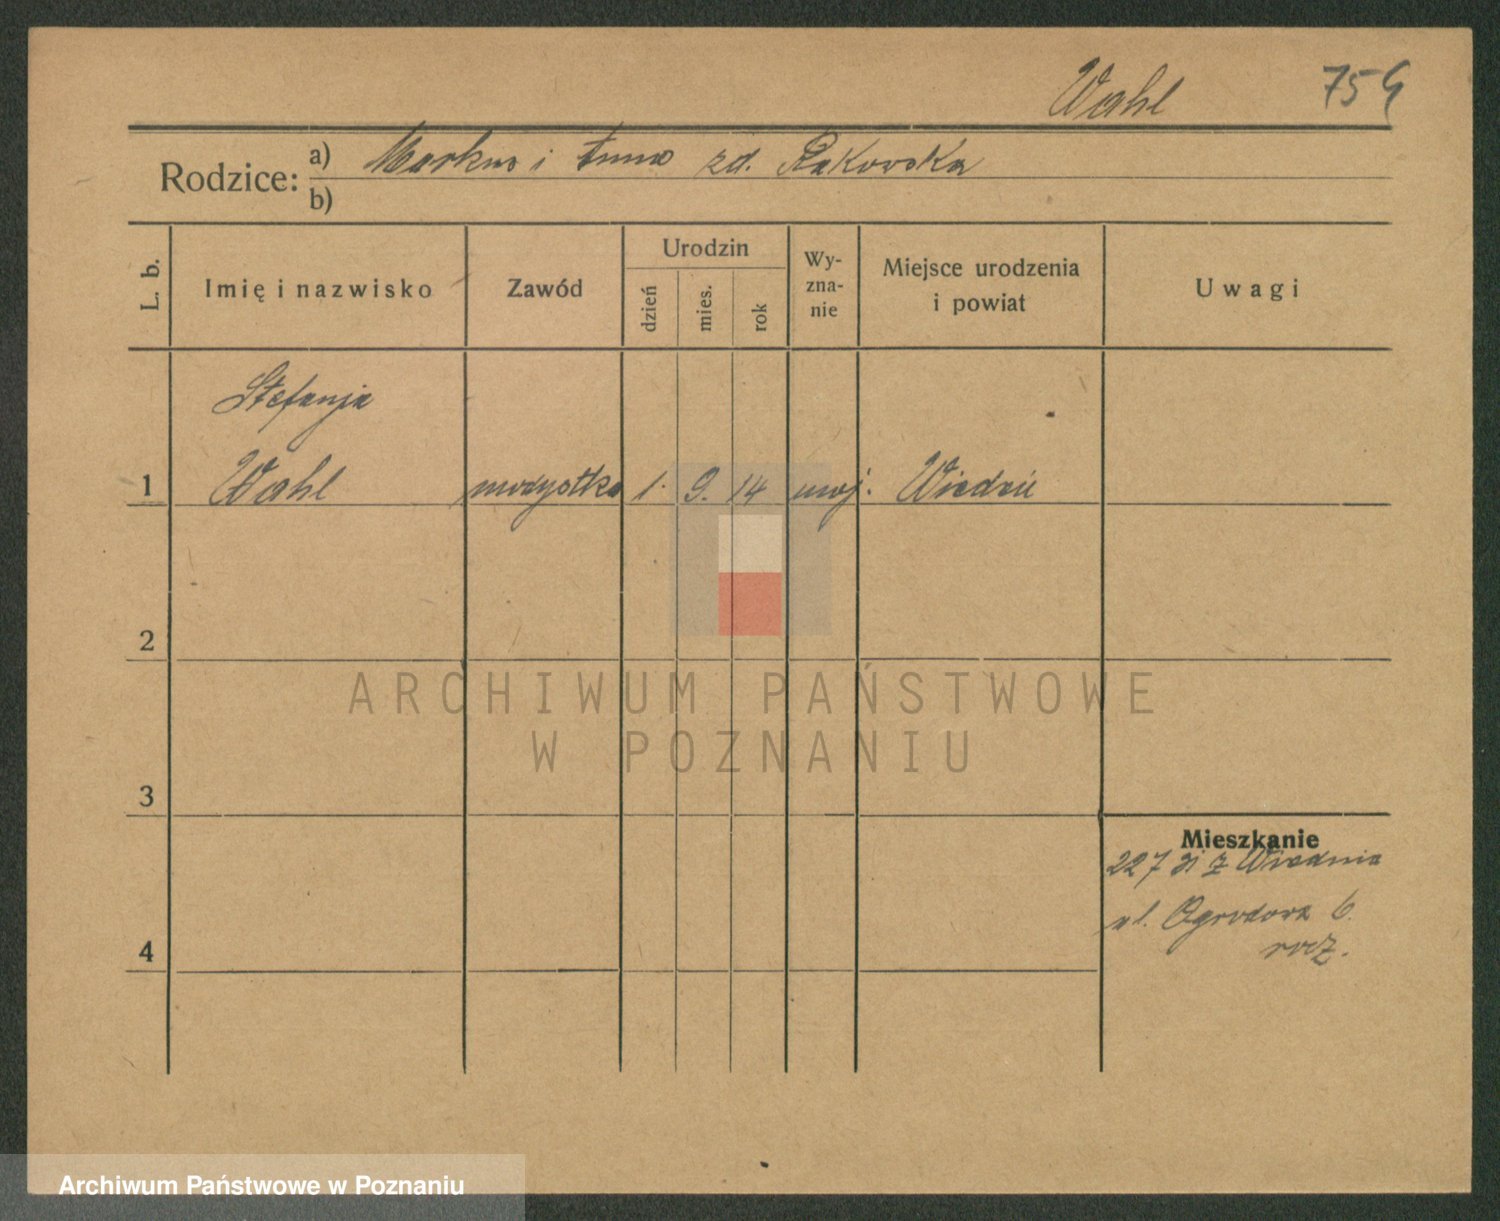 Wahl 759
Rodzice: a) Markus i Anna zd. Rakowska
b)
L. b. Imię i nazwisko Zawód Urodzin dzień mies. rok Wy-zna-nie Miejsce urodzenia i powiat Uwagi
Stefanja
1 Wahl modystka 1. 9. 14 mojż. Wiedeń
2
ARCHIWUM PAŃSTWOWE
W POZNANIU
3
Mieszkanie
22 7 31 z Wiednia
4 ul. Ogrodowa 6.
Archiwum Państwowe w Poznaniu